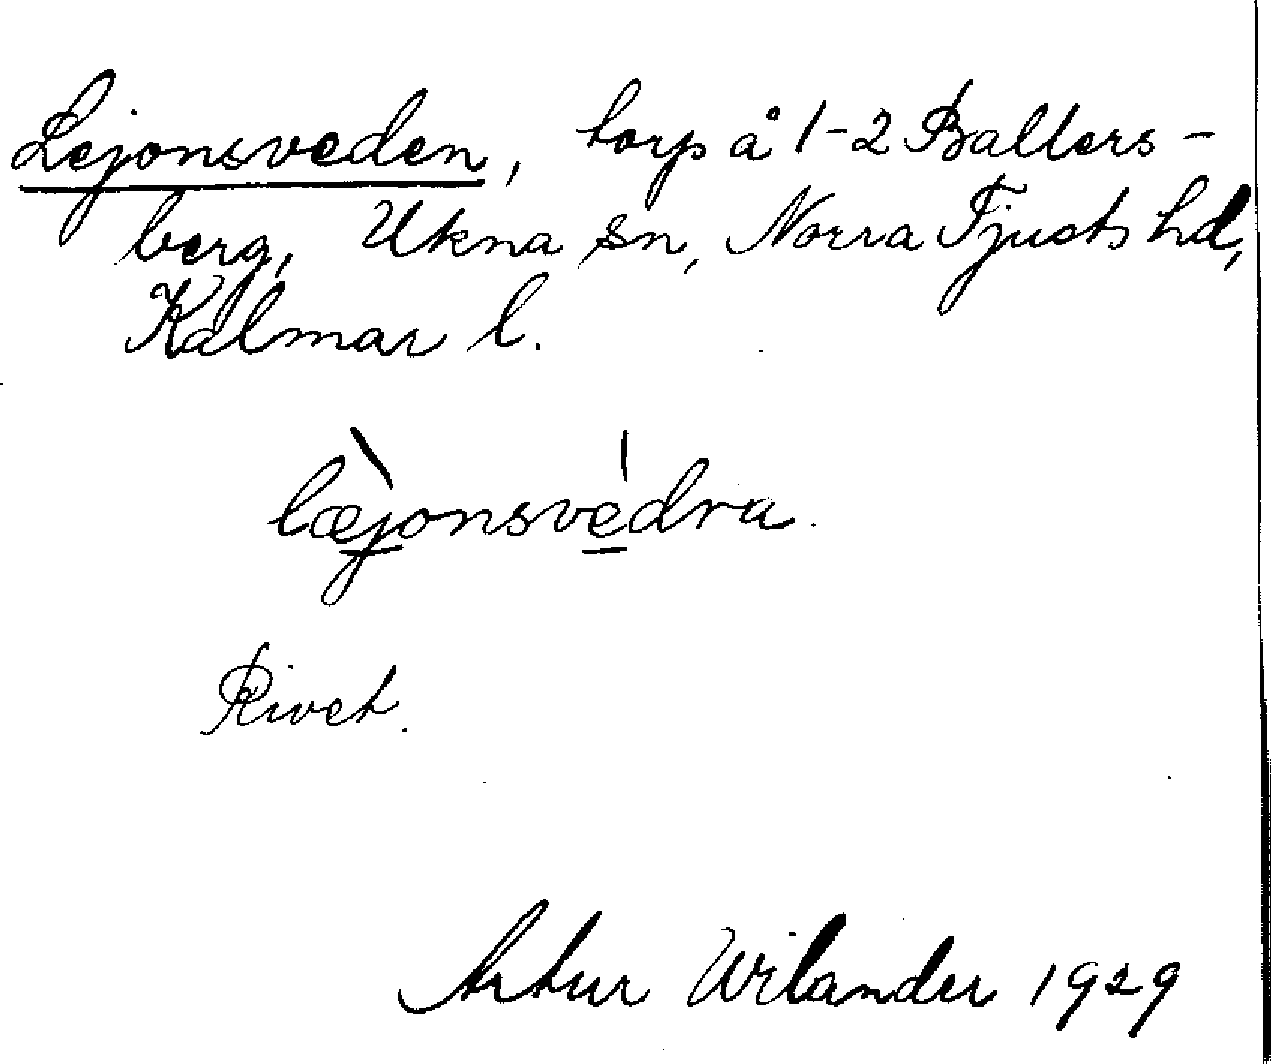 Lejonsveden, torp å 1-2 Ballers-
berg, Ukna sn, Norra Tjusts hd,
Kalmar l.
læ̀jonsvédra.
Rivet.
Artur Wilander 1929